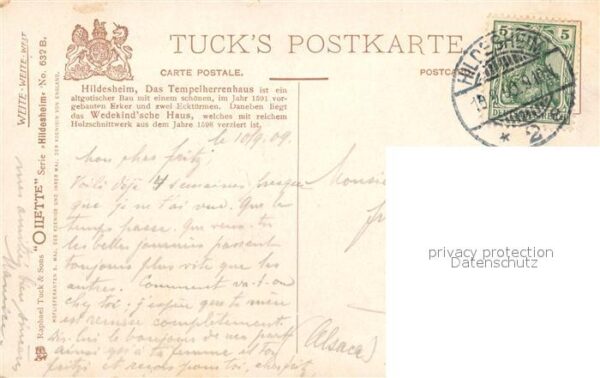 TUCK'S POSTKARTE.
CARTE POSTALE.
POSTCAR
Hildesheim, Das Tempelherrenhaus ist ein
altgotischer Bau mit einem schönen, im Jahr 1591 vor-
gebauten Erker und zwei Ecktürmen. Daneben liegt
das Wedekind'sche Haus, welches mit reichem
Holzschnittwerk aus dem Jahre 1598 verziert ist.
WEITE-WEITE-WELT
Raphael Tuck & Sons "OILETTE" Serie »Hildesheim« No. 632 B.
HOFLIEFERANTEN S. MAJ. DES KÖNIGS UND IHRER MAJ. DER KÖNIGIN VON ENGLAND.
5 5
HILDESHEIM
* 2
le 10/9.09.
mon cher fritz
Voilà déjà 4 semaines presque
que je ne t'ai vu. Que le
temps passe. Que veux-tu
les belles journées passent
toujours plus vite que les
autres. Comment va-t-on
chez toi; j'espère que ta mère
est remise complètement.
Dis-lui le bonjour de ma part
ainsi qu'à ta femme et ton
fritzi et reçois pour toi, cher fritz
mon amitié
Maurice
Monsie
(Alsace)
privacy protection
Datenschutz